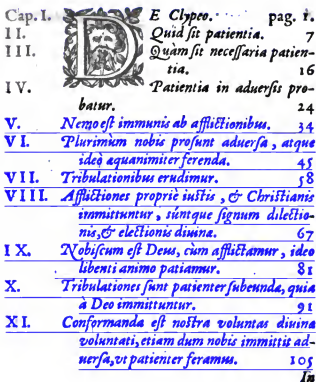 Cap. I. DE Clypeo. pag. 1.
II. Quid sit patientia. 7
III. Quàm sit necessaria patien-
tia. 16
IV. Patientia in adversis pro-
batur. 24
V. Nemo est immunis ab afflictionibus. 34
VI. Plurimùm nobis prosunt adversa, atque
ideò æquanimiter ferenda. 45
VII. Tribulationibus erudimur. 58
VIII. Afflictiones propriè iustis, & Christianis
immittuntur, súntque signum dilectio-
nis, & electionis divinæ. 67
IX. Nobiscum est Deus, cùm afflictamur, ideo
libenti animo patiamur. 81
X. Tribulationes sunt patienter subeundæ, quia
à Deo immittuntur. 91
XI. Conformanda est nostra voluntas divinæ
voluntati, etiam dum nobis immittit ad-
versa, vt patienter feramus. 105
In